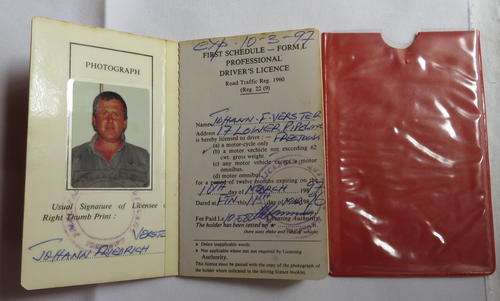 PHOTOGRAPH
Usual Signature of Licensee or
Right Thumb Print :
VERSTER
JOHANN FRIEDRICH
EXP. 10-3-97
FIRST SCHEDULE — FORM L
PROFESSIONAL
DRIVER'S LICENCE
Road Traffic Reg. 1960
(Reg. 22 (9)
Name JOHANN F. VERSTER
Address 17 LOWER
is hereby licensed to drive:— FREETOWN
(a) a motor-cycle only
(b) a motor vechicle not exceeding 62
cwt. gross weight
(c) any motor vehicle except a motor
omnibus.
(d) motor omnibus.
for a period of twelve months expiring on the
10TH day of MARCH 1997
Dated 11TH day of
For Licensing Authority.
The holder has been tested up
(here state make and
* Delete inapplicable words.
Not applicable where not required by Licensing
Authority.
This licence must be pasted with a copy of the photograph of
the holder where indicated in the driving licence booklet.